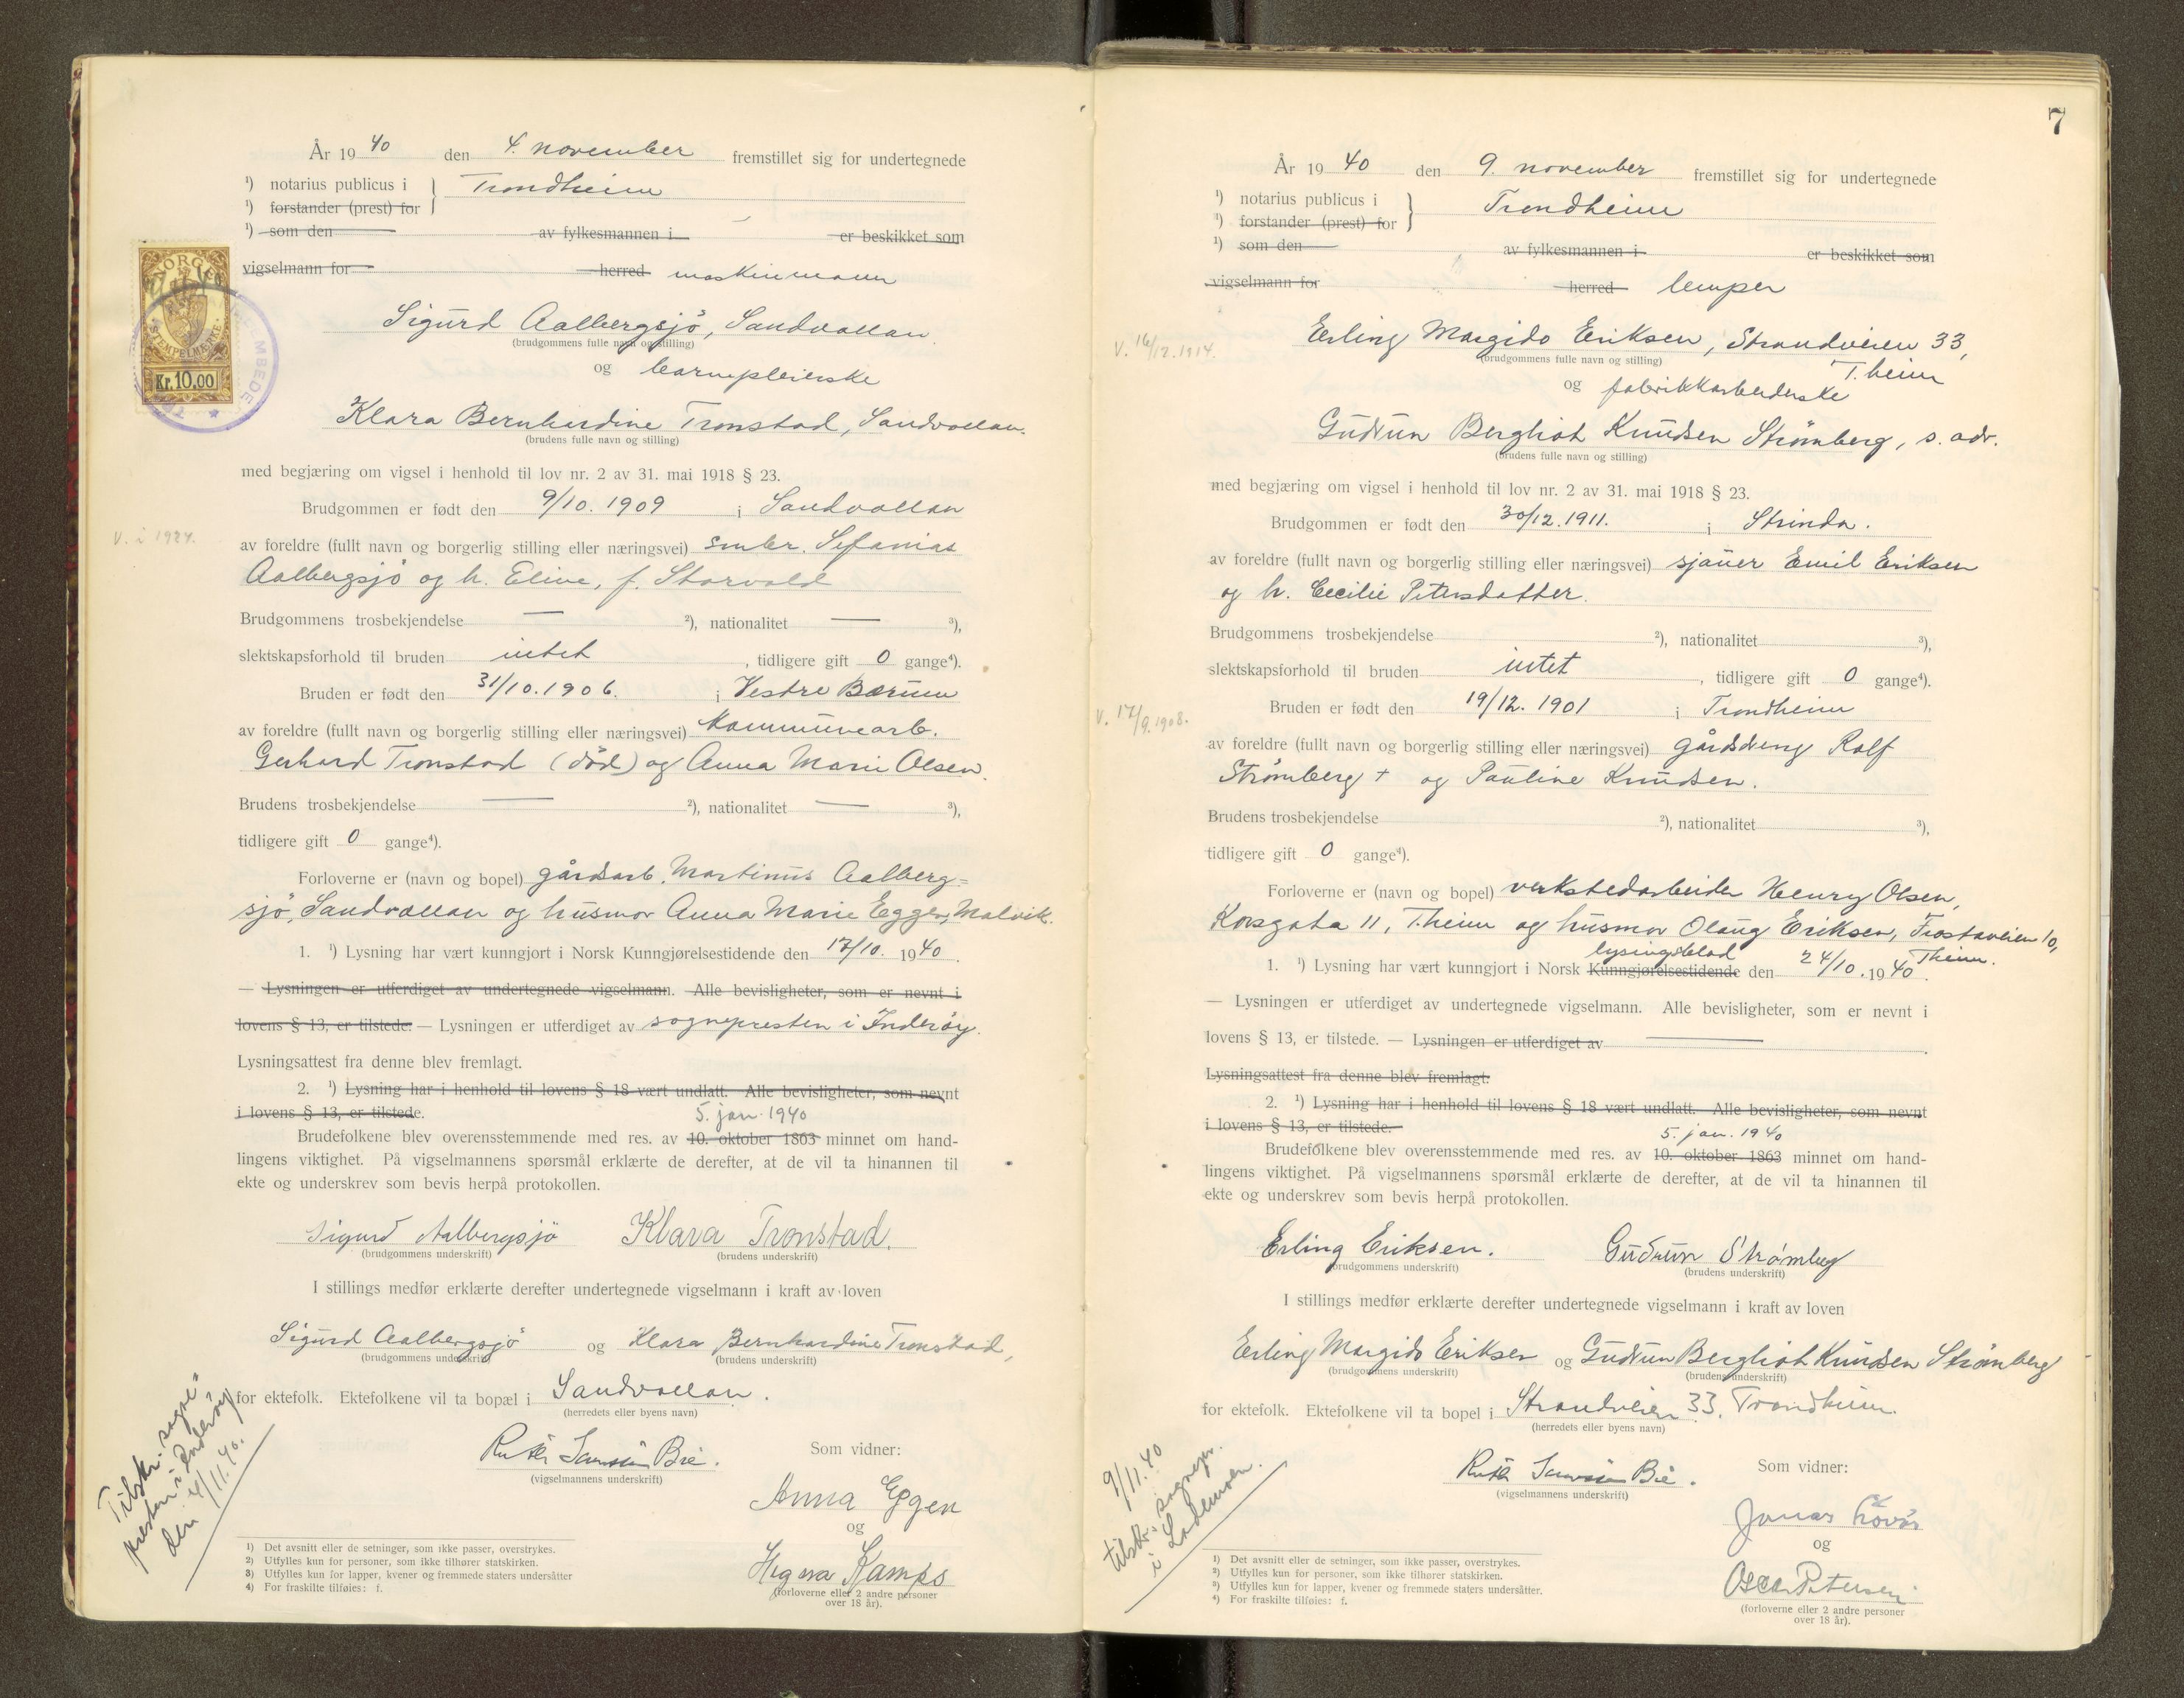 År 1940 den 4. november fremstillet sig for undertegnede
¹) notarius publicus i } Trondheim
¹) forstander (prest) for
¹) som den av fylkesmannen i er beskikket som
vigselmann for herred maskinmann
Sigurd Aalbergsjö, Sandvollan.
(brudgommens fulle navn og stilling)
og barnepleierske
Klara Bernhardine Tronstad, Sandvollan.
(brudens fulle navn og stilling)
med begjæring om vigsel i henhold til lov nr. 2 av 31. mai 1918 § 23.
Brudgommen er født den 9/10. 1909 i Sandvollan
V. i 1924.
av foreldre (fullt navn og borgerlig stilling eller næringsvei) smbr. Sefanias
Aalbergsjö og h. Eline, f. Storvold
Brudgommens trosbekjendelse — ²), nationalitet — ³),
slektskapsforhold til bruden intet, tidligere gift 0 gange⁴).
Bruden er født den 31/10.1906. i Vestre Bærum
av foreldre (fullt navn og borgerlig stilling eller næringsvei) Kommunearb.
Gerhard Tronstad (död) og Anna Marie Olsen.
Brudens trosbekjendelse — ²), nationalitet — ³),
tidligere gift 0 gange⁴).
Forloverne er (navn og bopel) gårdsarb. Martinus Aalberg=
sjö, Sandvollan og husmor Anna Marie Eggen, Malvik.
1. ¹) Lysning har vært kunngjort i Norsk Kunngjørelsestidende den 17/10. 1940.
— Lysningen er utferdiget av undertegnede vigselmann. Alle bevisligheter, som er nevnt i
lovens § 13, er tilstede. — Lysningen er utferdiget av sognepresten i Inderöy.
Lysningsattest fra denne blev fremlagt.
2. ¹) Lysning har i henhold til lovens § 18 vært undlatt. Alle bevisligheter, som nevnt
i lovens § 13, er tilstede. 5. jan. 1940
Brudefolkene blev overensstemmende med res. av 10. oktober 1863 minnet om hand-
lingens viktighet. På vigselmannens spørsmål erklærte de derefter, at de vil ta hinannen til
ekte og underskrev som bevis herpå protokollen.
Sigurd Aalbergsjö Klara Tronstad.
(brudgommens underskrift) (brudens underskrift)
I stillings medfør erklærte derefter undertegnede vigselmann i kraft av loven
Sigurd Aalbergsjö og Klara Bernhardine Tronstad,
(brudgommens underskrift) (brudens underskrift)
for ektefolk. Ektefolkene vil ta bopæl i Sandvollan.
(herredets eller byens navn)
Ruth Bie. Som vidner:
(vigselmannens underskrift)
Anna Eggen
og
Kamps
(forloverne eller 2 andre personer
over 18 år).
Tilskr. sogne=
presten i Inderöy
den 4/11.40.
¹) Det avsnitt eller de setninger, som ikke passer, overstrykes.
²) Utfylles kun for personer, som ikke tilhører statskirken.
³) Utfylles kun for lapper, kvener og fremmede staters undersåtter
⁴) For fraskilte tilføies: f.
NORGE
STEMPELMERKE
Kr.10.00
7
År 1940 den 9. november fremstillet sig for undertegnede
¹) notarius publicus i } Trondheim
¹) forstander (prest) for
¹) som den av fylkesmannen i er beskikket som
vigselmann for herred lemper
V. 16/12.1914.
Erling Margido Eriksen, Strandveien 33,
(brudgommens fulle navn og stilling) T.heim
og fabrikkarbeiderske
Gudrun Bergliot Knudsen Strömberg, s. adr.
(brudens fulle navn og stilling)
med begjæring om vigsel i henhold til lov nr. 2 av 31. mai 1918 § 23.
Brudgommen er født den 30/12.1911. i Strinda.
av foreldre (fullt navn og borgerlig stilling eller næringsvei) sjauer Emil Eriksen
og h. Cecilie Petersdatter.
Brudgommens trosbekjendelse ²), nationalitet ³),
slektskapsforhold til bruden intet, tidligere gift 0 gange⁴).
Bruden er født den 19/12. 1901 i Trondheim
V. 17/9.1908.
av foreldre (fullt navn og borgerlig stilling eller næringsvei) gårdsdreng Rolf
Strömberg + og Pauline Knudsen.
Brudens trosbekjendelse ²), nationalitet ³),
tidligere gift 0 gange⁴).
Forloverne er (navn og bopel) verkstedarbeider Henry Olsen,
Korsgata 11, T.heim og husmor Olaug Eriksen, Frostaveien 10,
lysingsblad T.heim.
1. ¹) Lysning har vært kunngjort i Norsk Kunngjørelsestidende den 24/10. 1940.
— Lysningen er utferdiget av undertegnede vigselmann. Alle bevisligheter, som er nevnt i
lovens § 13, er tilstede. — Lysningen er utferdiget av —
Lysningsattest fra denne blev fremlagt.
2. ¹) Lysning har i henhold til lovens § 18 vært undlatt. Alle bevisligheter, som nevnt
i lovens § 13, er tilstede. 5. jan. 1940
Brudefolkene blev overensstemmende med res. av 10. oktober 1863 minnet om hand-
lingens viktighet. På vigselmannens spørsmål erklærte de derefter, at de vil ta hinannen til
ekte og underskrev som bevis herpå protokollen.
Erling Eriksen. Gudrun Strömberg
(brudgommens underskrift) (brudens underskrift)
I stillings medfør erklærte derefter undertegnede vigselmann i kraft av loven
Erling Margido Eriksen og Gudrun Bergliot Knudsen Strömberg
(brudgommens underskrift) (brudens underskrift)
for ektefolk. Ektefolkene vil ta bopel i Strandveien 33, Trondheim.
(herredets eller byens navn)
Ruth Bie. Som vidner:
(vigselmannens underskrift)
Jonas
og
Oscar Petersen
(forloverne eller 2 andre personer
over 18 år).
9/11.40
tilskr. sognepr.
i Lademoen.
¹) Det avsnitt eller de setninger, som ikke passer, overstrykes.
²) Utfylles kun for personer, som ikke tilhører statskirken.
³) Utfylles kun for lapper, kvener og fremmede staters undersåtter.
⁴) For fraskilte tilføies: f.